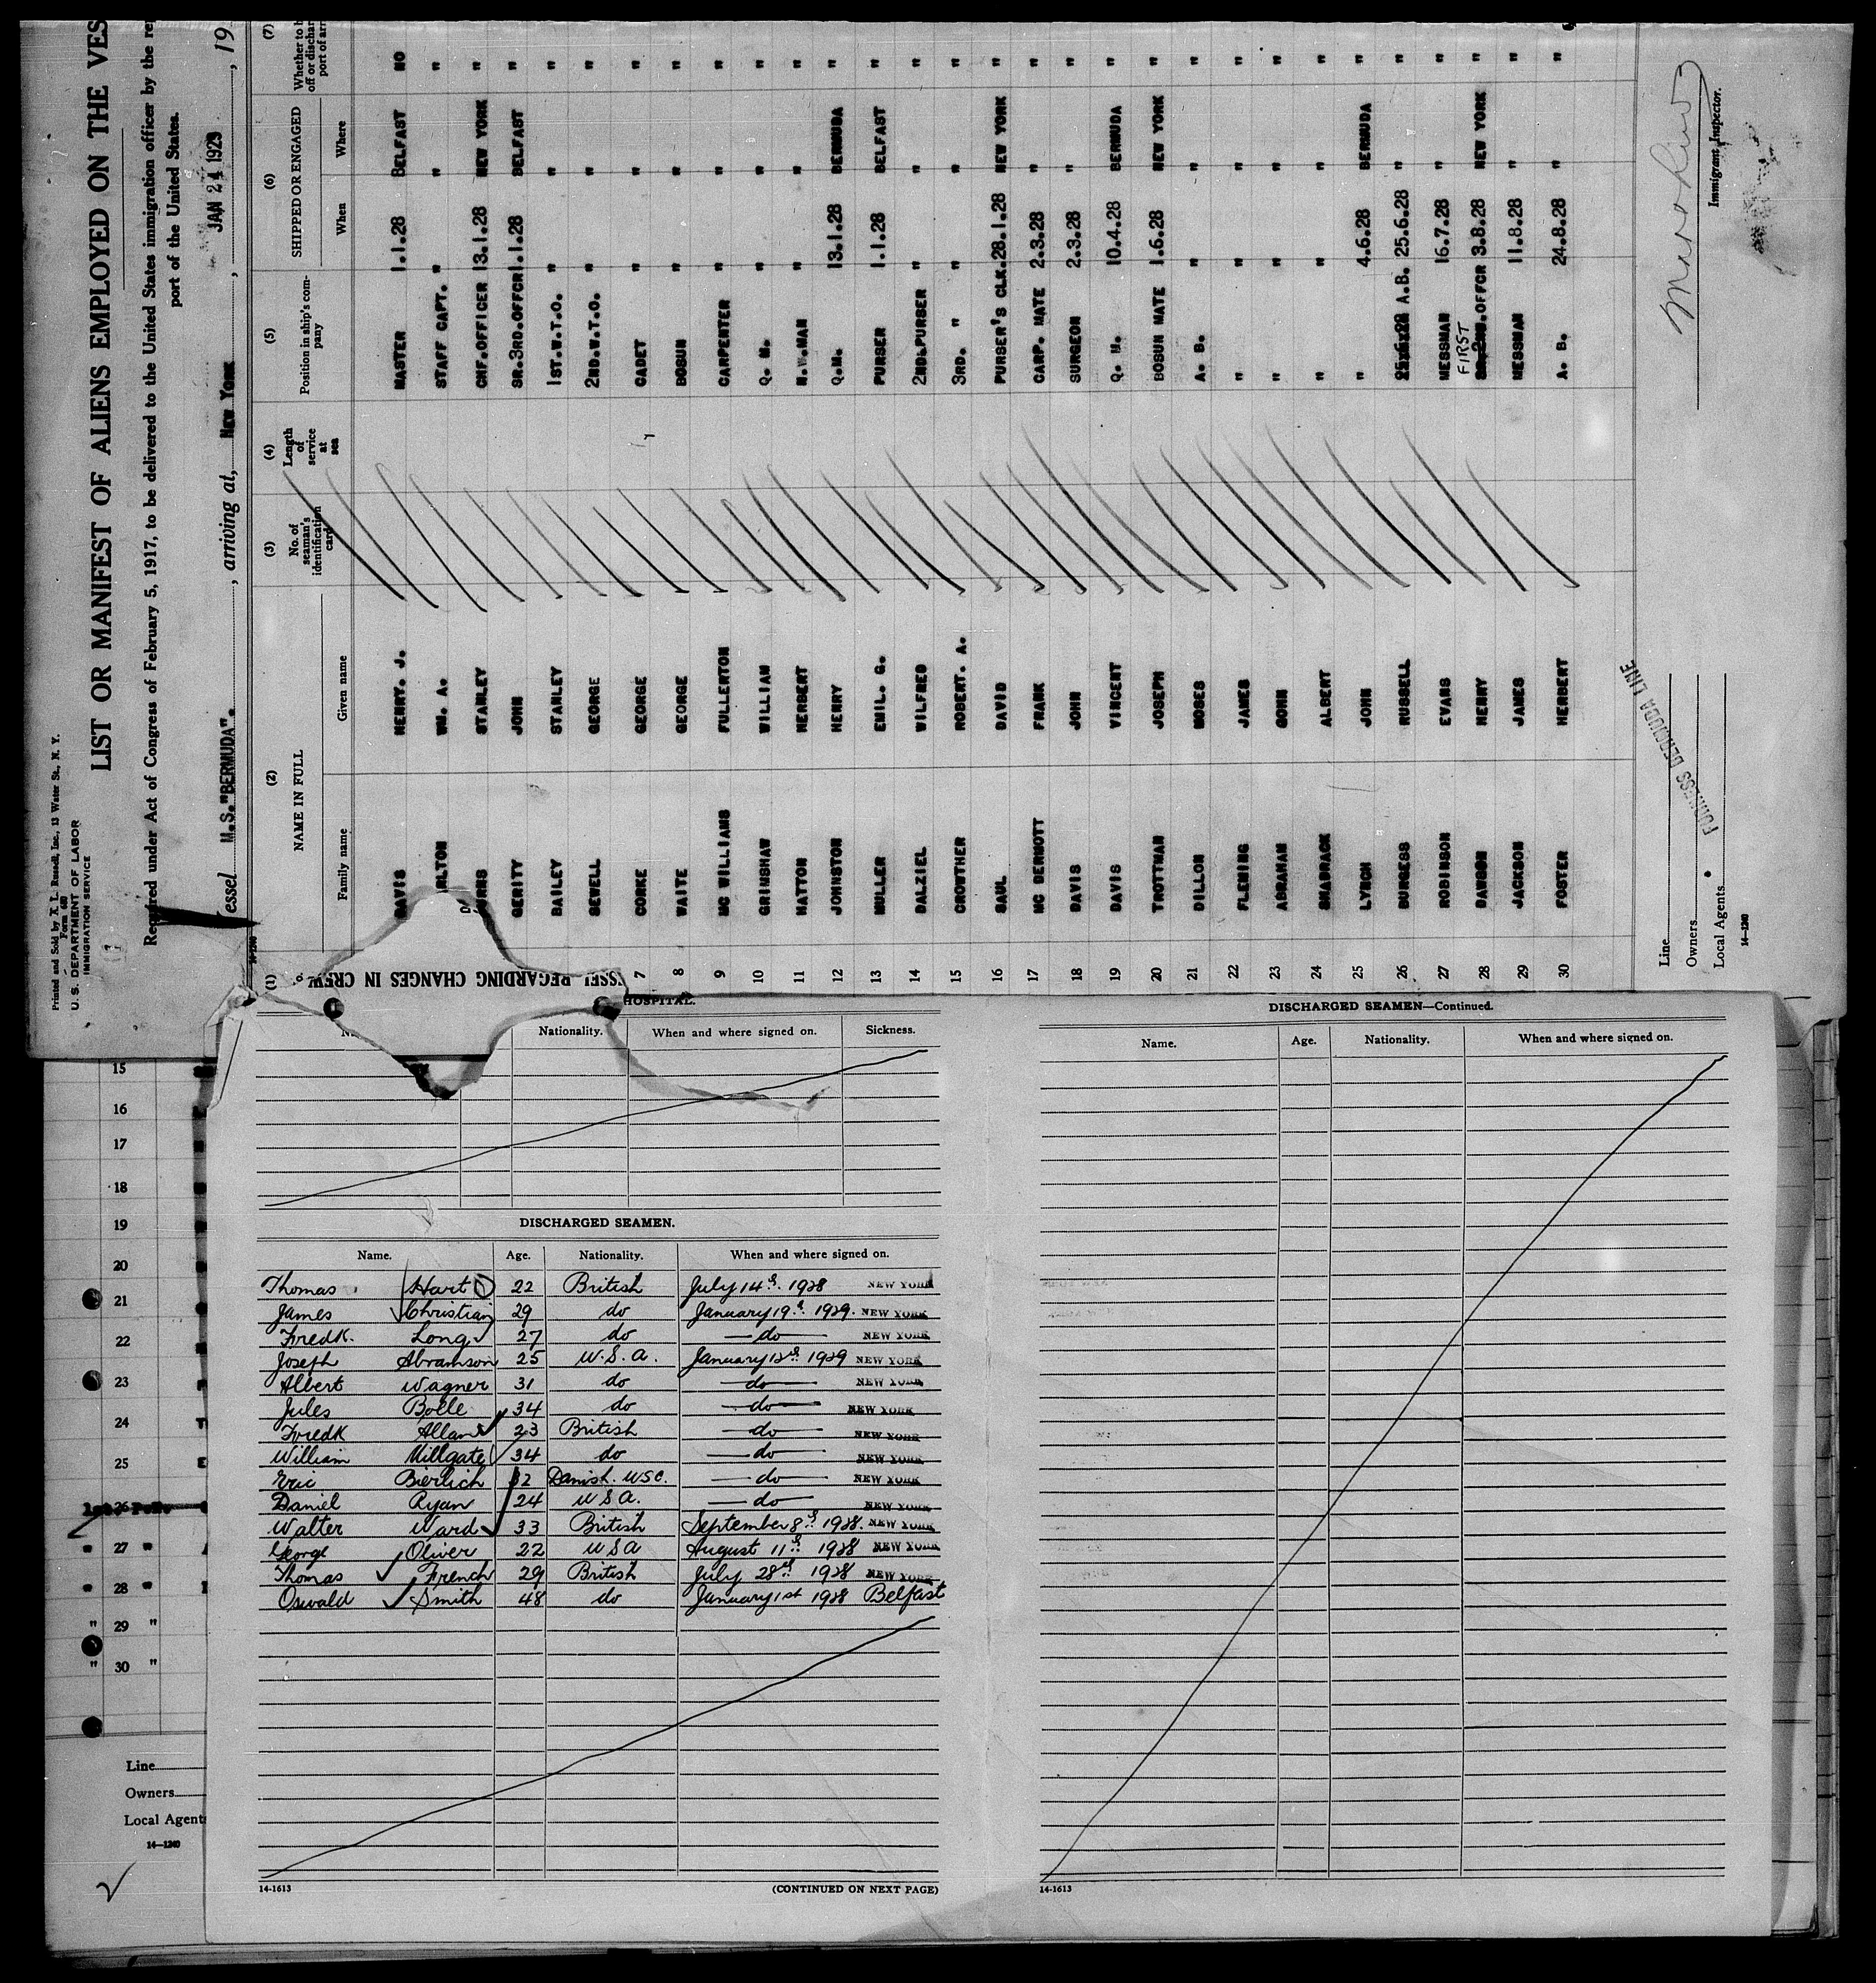 Printed and Sold by X. L. Russell, Inc., 13 Water St., N. Y.
Form 680
U. S. DEPARTMENT OF LABOR
IMMIGRATION SERVICE
LIST OR MANIFEST OF ALIENS EMPLOYED ON THE VES
Required under Act of Congress of February 5, 1917, to be delivered to the United States immigration officer by the re
port of the United States.
essel M.S. "BERMUDA". , arriving at, New York , JAN 24 1929 , 19
(1) (2) (3) (4) (5) (6) (7)
NAME IN FULL No. of seaman's identification card Length of service at sea Position in ship's com-pany SHIPPED OR ENGAGED Whether to b off or dischar port of arr
Family name Given name When Where
DAVIS HENRY. J. MASTER 1.1.28 BELFAST NO
ARLTON WM. A. STAFF CAPT. " " "
URNS STANLEY CHF.OFFICER 13.1.28 NEW YORK "
GERITY JOHN SR.3RD.OFFCR 1.1.28 BELFAST "
BAILEY STANLEY 1ST.W.T.O. " " "
SEWELL GEORGE 2ND.W.T.O. " " "
7 CORKE GEORGE CADET " " "
8 WAITE GEORGE BOSUN " " "
9 MC WILLIAMS FULLERTON CARPENTER " " "
10 GRIMSHAW WILLIAM Q. M. " " "
11 HATTON HERBERT N.W.MAN " " "
12 JOHNSTON HENRY Q.M. 13.1.28 BERMUDA "
13 MULLER EMIL. G. PURSER 1.1.28 BELFAST "
14 DALZIEL WILFRED 2ND.PURSER " " "
15 CROWTHER ROBERT. A. 3RD. " " " "
16 SAUL DAVID PURSER'S CLK. 28.1.28 NEW YORK "
17 MC DERMOTT FRANK CARP. MATE 2.3.28 " "
18 DAVIS JOHN SURGEON 2.3.28 " "
19 DAVIS VINCENT Q. M. 10.4.28 BERMUDA "
20 TROTTMAN JOSEPH BOSUN MATE 1.6.28 NEW YORK "
21 DILLON MOSES A. B. " " "
22 FLEMING JAMES " " " "
23 ABRAHAM GOHN " " " "
24 SHADRACK ALBERT " " " "
25 LYNCH JOHN " 4.6.28 BERMUDA "
26 BURGESS RUSSELL A.B. 25.6.28 " "
27 ROBINSON EVANS MESSMAN 16.7.28 " "
28 DAWSON HENRY FIRST OFFCR 3.8.28 NEW YORK "
29 JACKSON JAMES MESSMAN 11.8.28 " "
30 FOSTER HERBERT A. B. 24.8.28 " "
Line
Owners
Local Agents
FURNESS BERMUDA LINE
14-1240
Immigrant Inspector.
SSEL REGARDING CHANGES IN CREW
HOSPITAL.
Nationality. When and where signed on. Sickness.
DISCHARGED SEAMEN.
Name. Age. Nationality. When and where signed on.
Thomas Hart 22 British July 14th. 1928 NEW YORK
James Christian 29 do January 19th 1929. NEW YORK
Fredk. Long 27 do — do — NEW YORK
Joseph Abramson 25 U.S.A. January 12th 1929 NEW YORK
Albert Wagner 31 do — do — NEW YORK
Jules Bolle 34 do — do — NEW YORK
Fredk Allan 23 British — do — NEW YORK
William Millgate 34 do — do — NEW YORK
Eric Bierlich 32 Danish. USC. — do — NEW YORK
Daniel Ryan 24 U S A. — do — NEW YORK
Walter Ward 33 British September 8th 1928. NEW YORK
George Oliver 22 U S A August 11th 1928 NEW YORK
Thomas French 29 British July 28th 1928 NEW YORK
Oswald Smith 48 do January 1st 1928 Belfast
14-1613 (CONTINUED ON NEXT PAGE)
DISCHARGED SEAMEN—Continued.
Name. Age. Nationality. When and where signed on.
14-1613
15
16
17
18
19
20
21
22
23
24
25
26
" 27 "
" 28 "
" 29 "
" 30 "
Line
Owners
Local Agent
14-1240